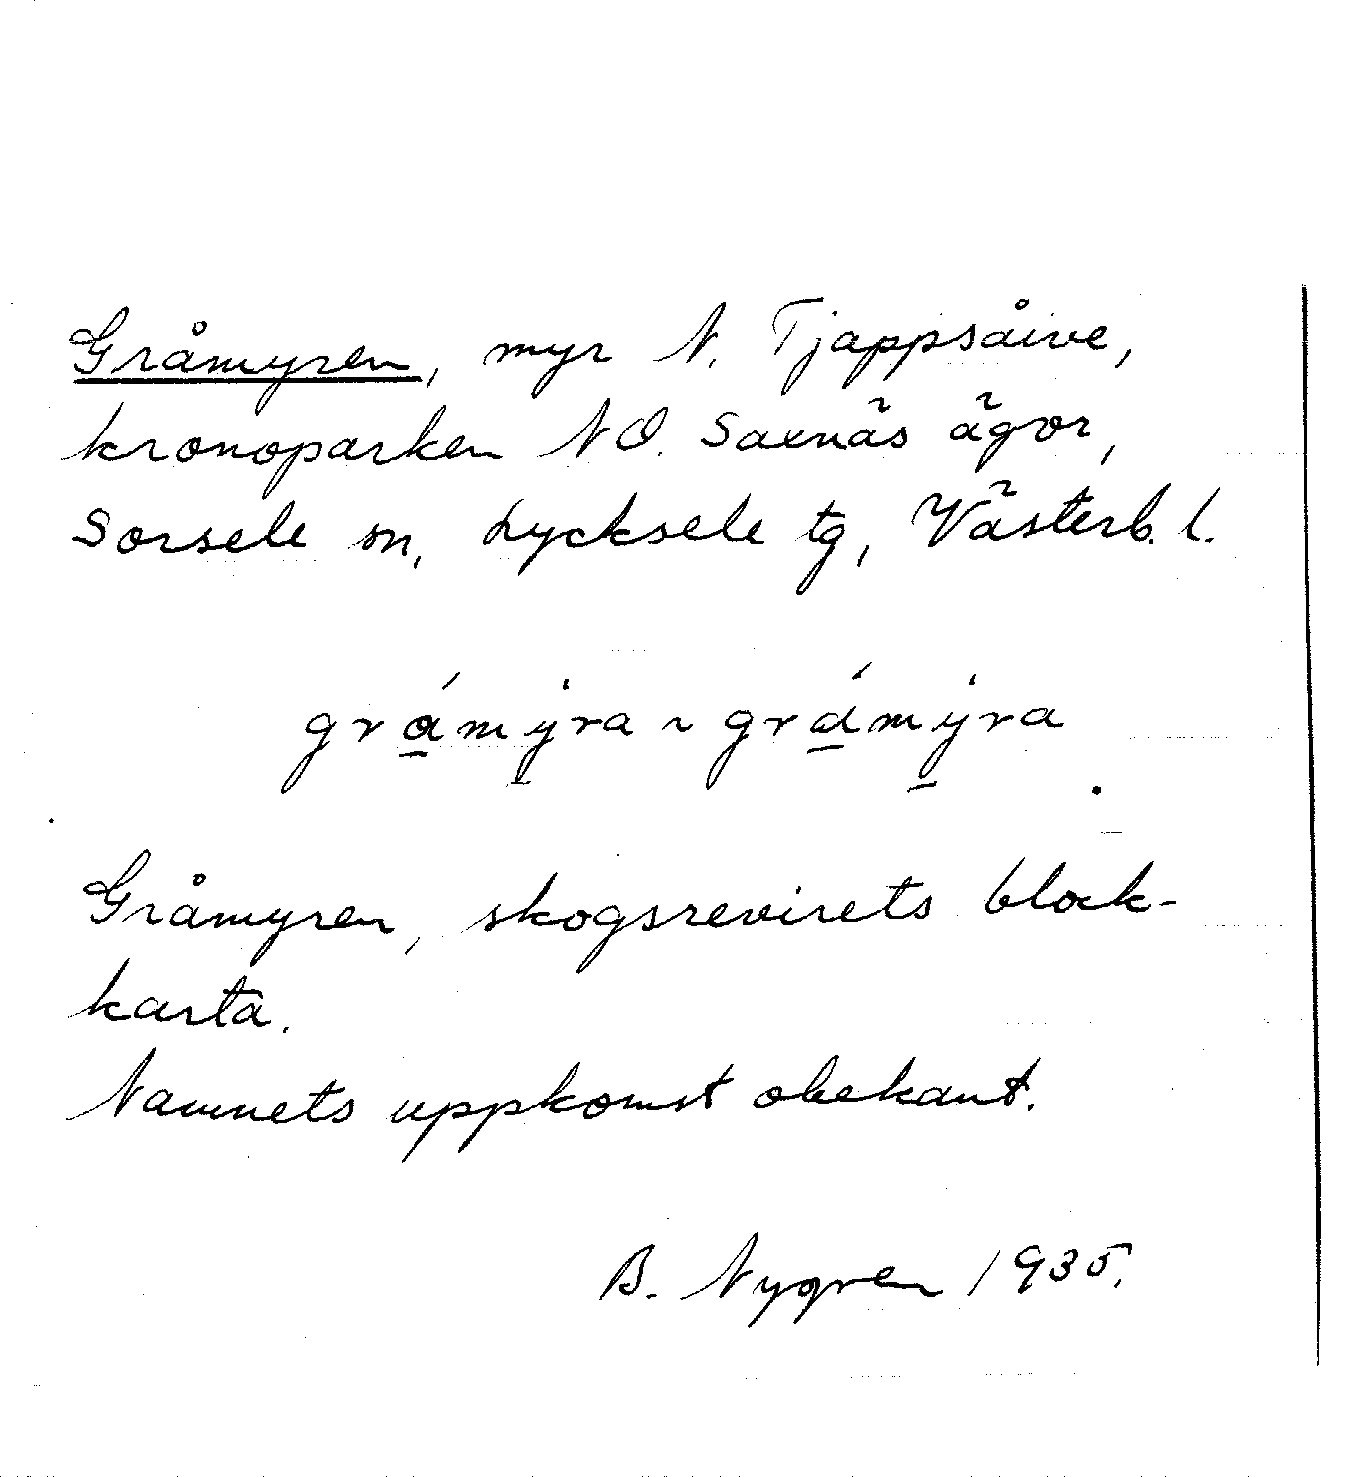 Gråmyren, myr N. Tjappsåive,
kronoparken NO. Saxnäs ägor,
Sorsele sn, Lycksele tg, Västerb. l.
grámýra ~ grámýra
Gråmyren, skogsrevirets block-
karta.
Namnets uppkomst obekant.
B. Nygren 1935.